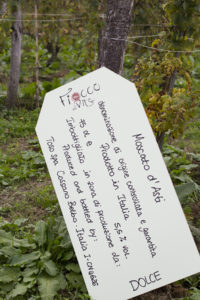 FIOCCO
di VITE
Moscato d'Asti
denominazione di origine controllata e garantita
Prodotto in Italia 5,5% vol.
75 cl e
Imbottigliato in zona di produzione da:
Produced and bottled by:
Toso spa Cossano Belbo, Italia I-CN
DOLCE